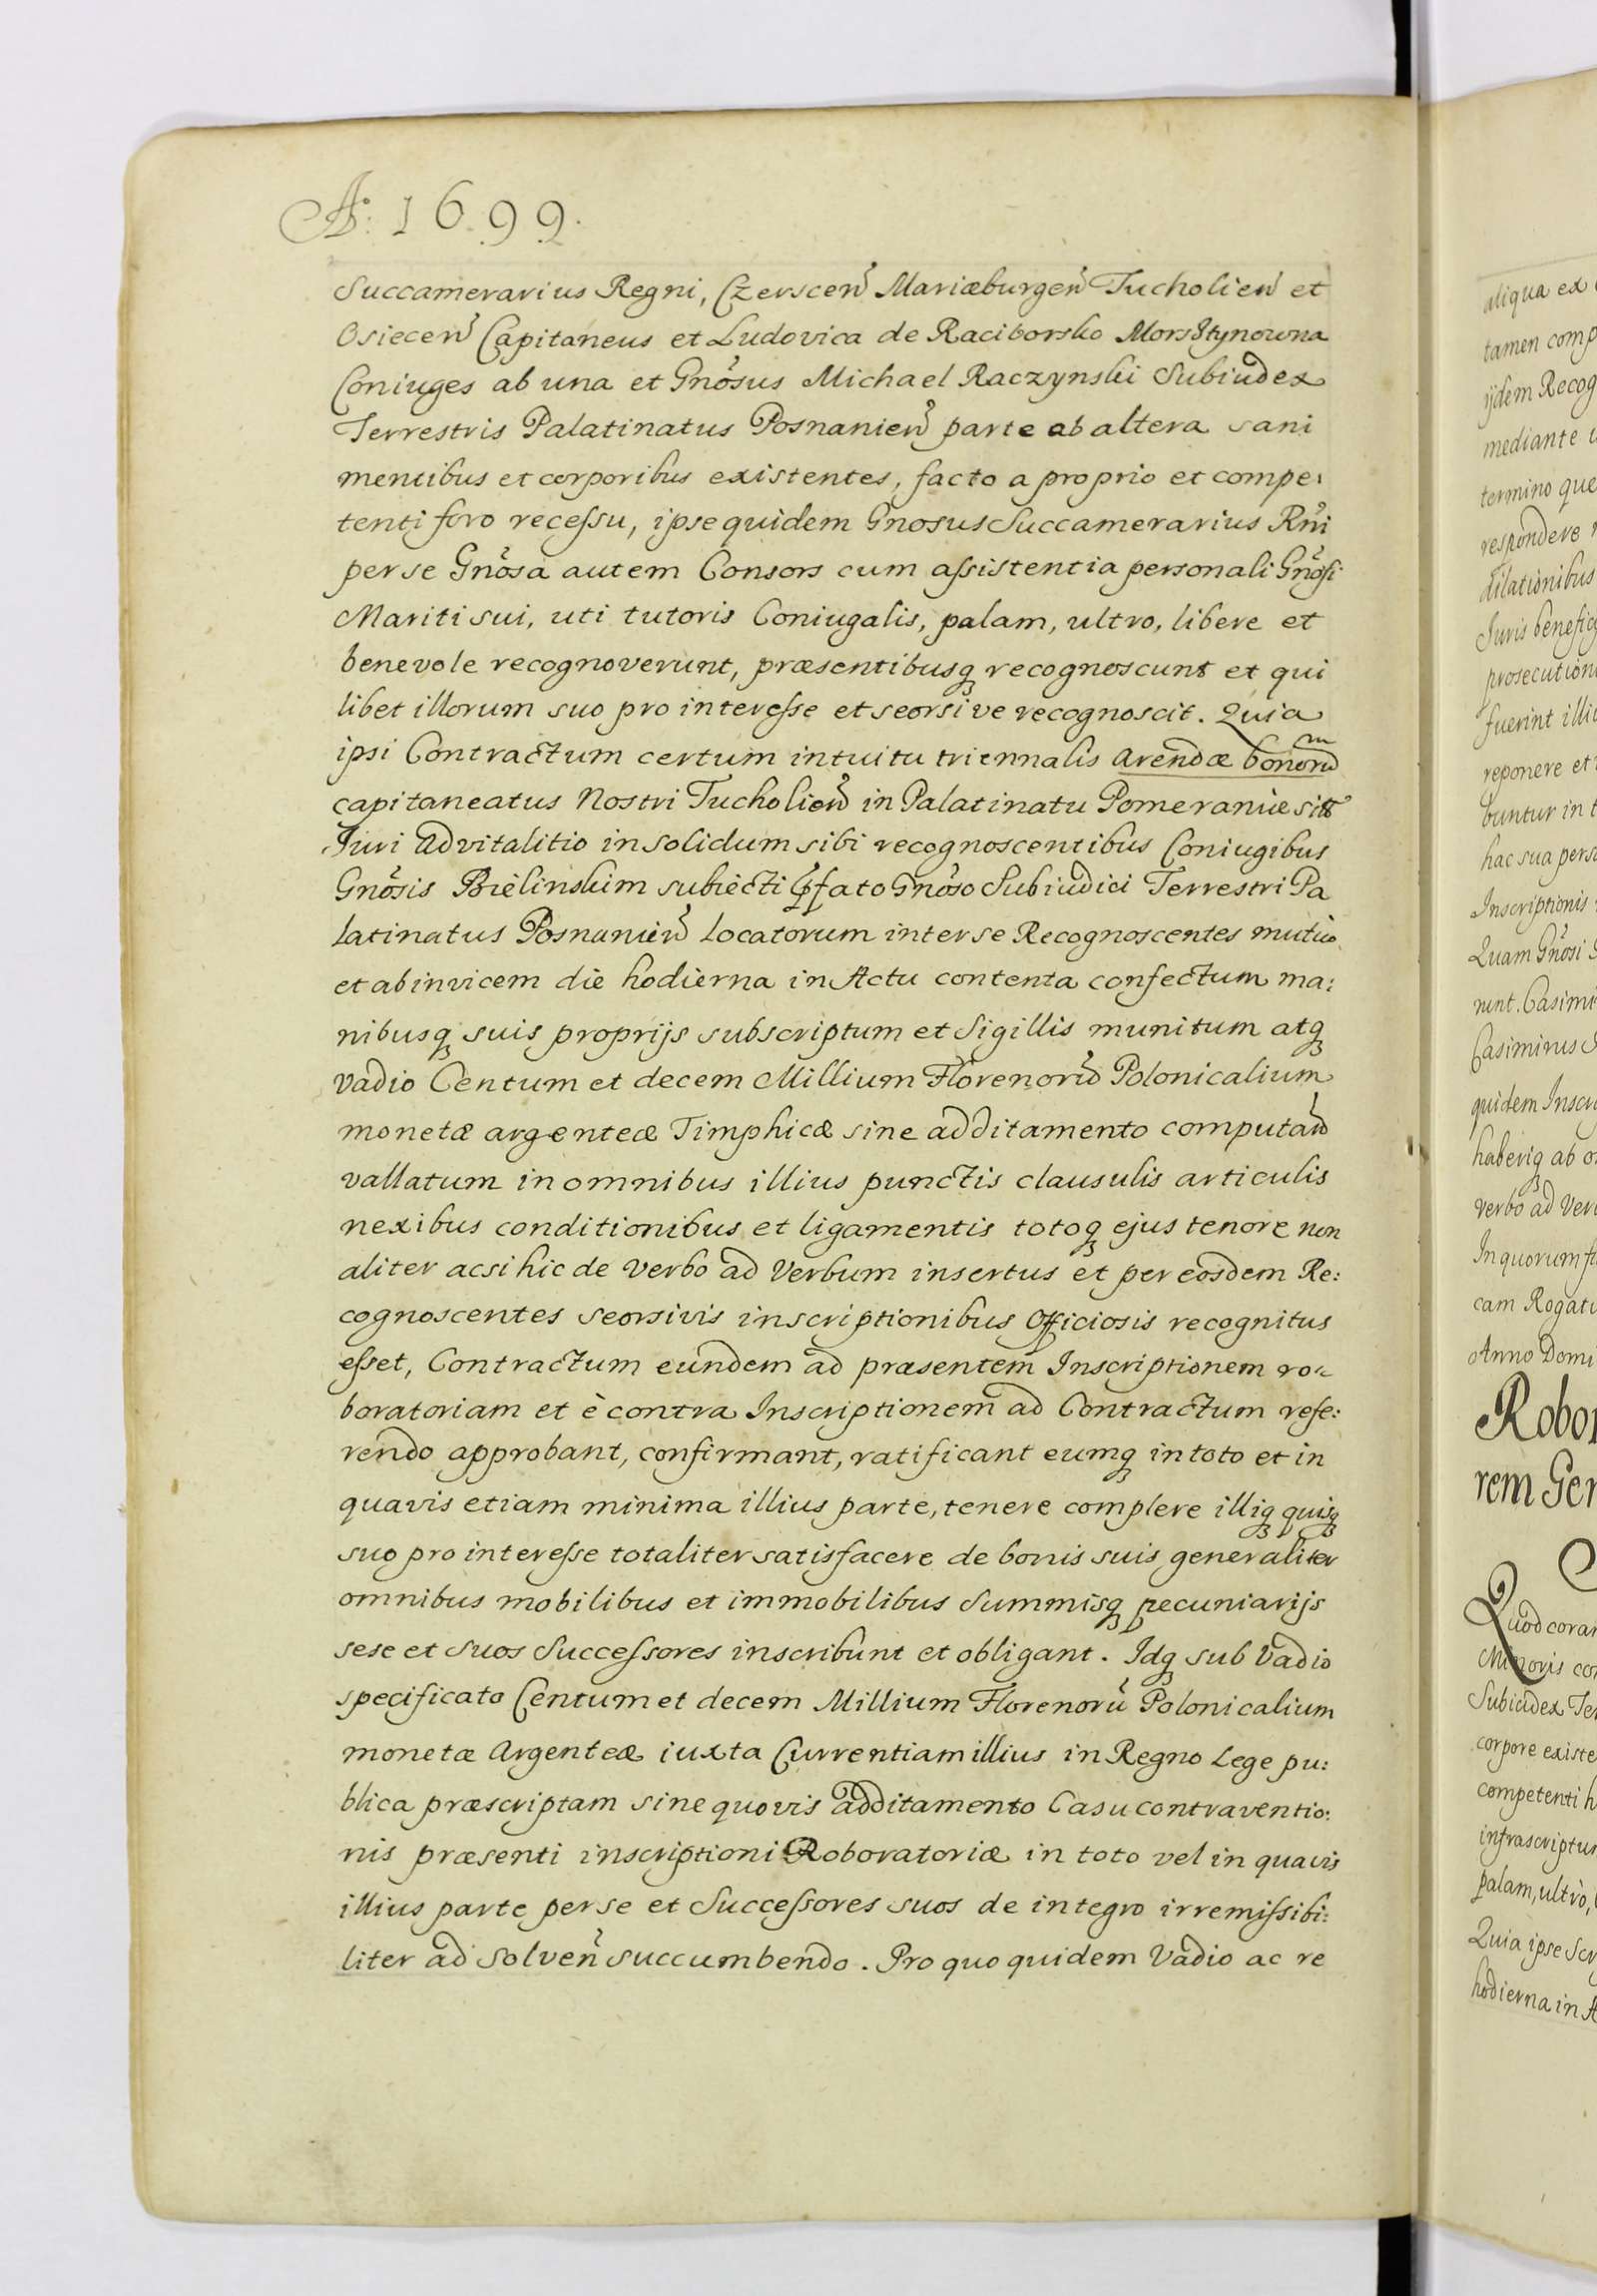 Aº. 1699.
Succamerarius Regni, Czerscen̉ Mariæburgen̉ Tucholien̉ et
Osiecen̉ Capitaneus et Ludovica de Raciborsko Morsztynowna
Coniuges ab una et Gnõsus Michael Raczynski Subiudex
Terrestris Palatinatus Posnanien̉ parte ab altera sani
mentibus et corporibus existentes, facto a proprio et compe:
tenti foro recessu, ipse quidem Gnosus Succamerarius Rñi
per se Gnõsa autem Consors cum assistentia personali Gnõsi
Mariti sui, uti tutoris Coniugalis, palam, ultro, libere et
benevole recognoverunt, præsentibusq recognoscunt et qui
libet illorum suo pro interesse et seorsive recognoscit. Quia
ipsi Contractum certum intuitu triennalis arendæ bonorũ
capitaneatus Nostri Tucholien̉ in Palatinatu Pomeraniæ sitt
Iuri advitalitio in solidum sibi recognoscentibus Coniugibus
Gnõsis Bielinskim subiecti p̃fato Gnõso Subiudici Terrestri Pa
latinatus Posnanien̉ locatorum inter se Recognoscentes mutuo
et ab invicem die hodierna in Actu contenta confectum ma:
nibusq suis proprijs subscriptum et Sigillis munitum atq
vadio Centum et decem Millium Florenorũ Polonicalium
monetæ argenteæ Timphicæ sine additamento computan̉
vallatum in omnibus illius punctis clausulis articulis
nexibus conditionibus et ligamentis totoq ejus tenore non
aliter acsi hic de verbo ad Verbum insertus et per eosdem Re:
cognoscentes seorsivis inscriptionibus Officiosis recognitus
esset, Contractum eundem ad præsentem Inscriptionem ro:
boratoriam et è contra Inscriptionem ad Contractum refe:
rendo approbant, confirmant, ratificant eumq in toto et in
quavis etiam minima illius parte, tenere complere illiq quisq
suo pro interesse totaliter satisfacere de bonis suis generaliter
omnibus mobilibus et immobilibus Summisq pecuniarijs
sese et suos Successores inscribunt et obligant. Idq sub Vadio
specificato Centum et decem Millium Florenorũ Polonicalium
monetæ Argenteæ iuxta Currentiam illius in Regno Lege pu:
blica præscriptam sine quovis additamento Casu contraventio:
nis præsenti inscriptioni Roboratoriæ in toto vel in quavis
illius parte per se et Successores suos de integro irremissibi:
liter ad solven̉ succumbendo. Pro quo quidem Vadio ac re
aliqua ex
tamen comp
ijdem Recog
mediante
termino que
respondere
dilationibus
Iuris benefic
prosecution
fuerint illi
reponere et
buntur in
hac sua pers
Inscriptionis
Quam Gnõsi
runt. Casimi
Casimirus
quidem Inscr
haberiq ab o
verbo ad Ver
In quorum fi
cam Rogatu
Anno Domi
Robor
rem Gen
Quod coram
Minoris co
Subiudex Ter
corpore existe
competenti h
infrascriptu
palam, ultrò,
Quia ipse Scr
hodierna in A